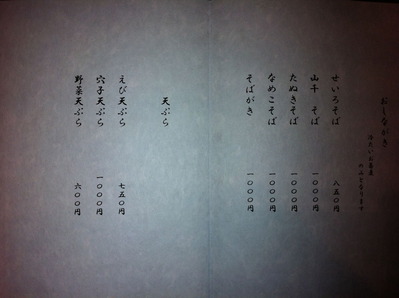 おしながき
冷たいお蕎麦
のみとなります
せいろそば 八五〇円
そば 一〇〇〇円
たぬきそば 一〇〇〇円
なめこそば 一〇〇〇円
そばがき 一〇〇〇円
天ぷら
えび天ぷら 七五〇円
穴子天ぷら 一〇〇〇円
野菜天ぷら 六〇〇円